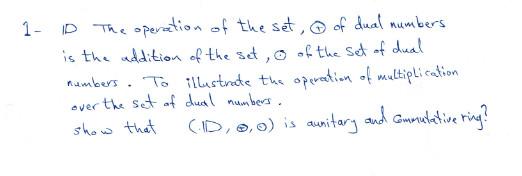 1- ID The operation of the set, ⊕ of dual numbers
is the addition of the set, ⊙ of the set of dual
numbers. To illustrate the operation of multiplication
over the set of dual numbers.
show that (ID, ⊕, ⊙) is aunitary and Commutative ring?